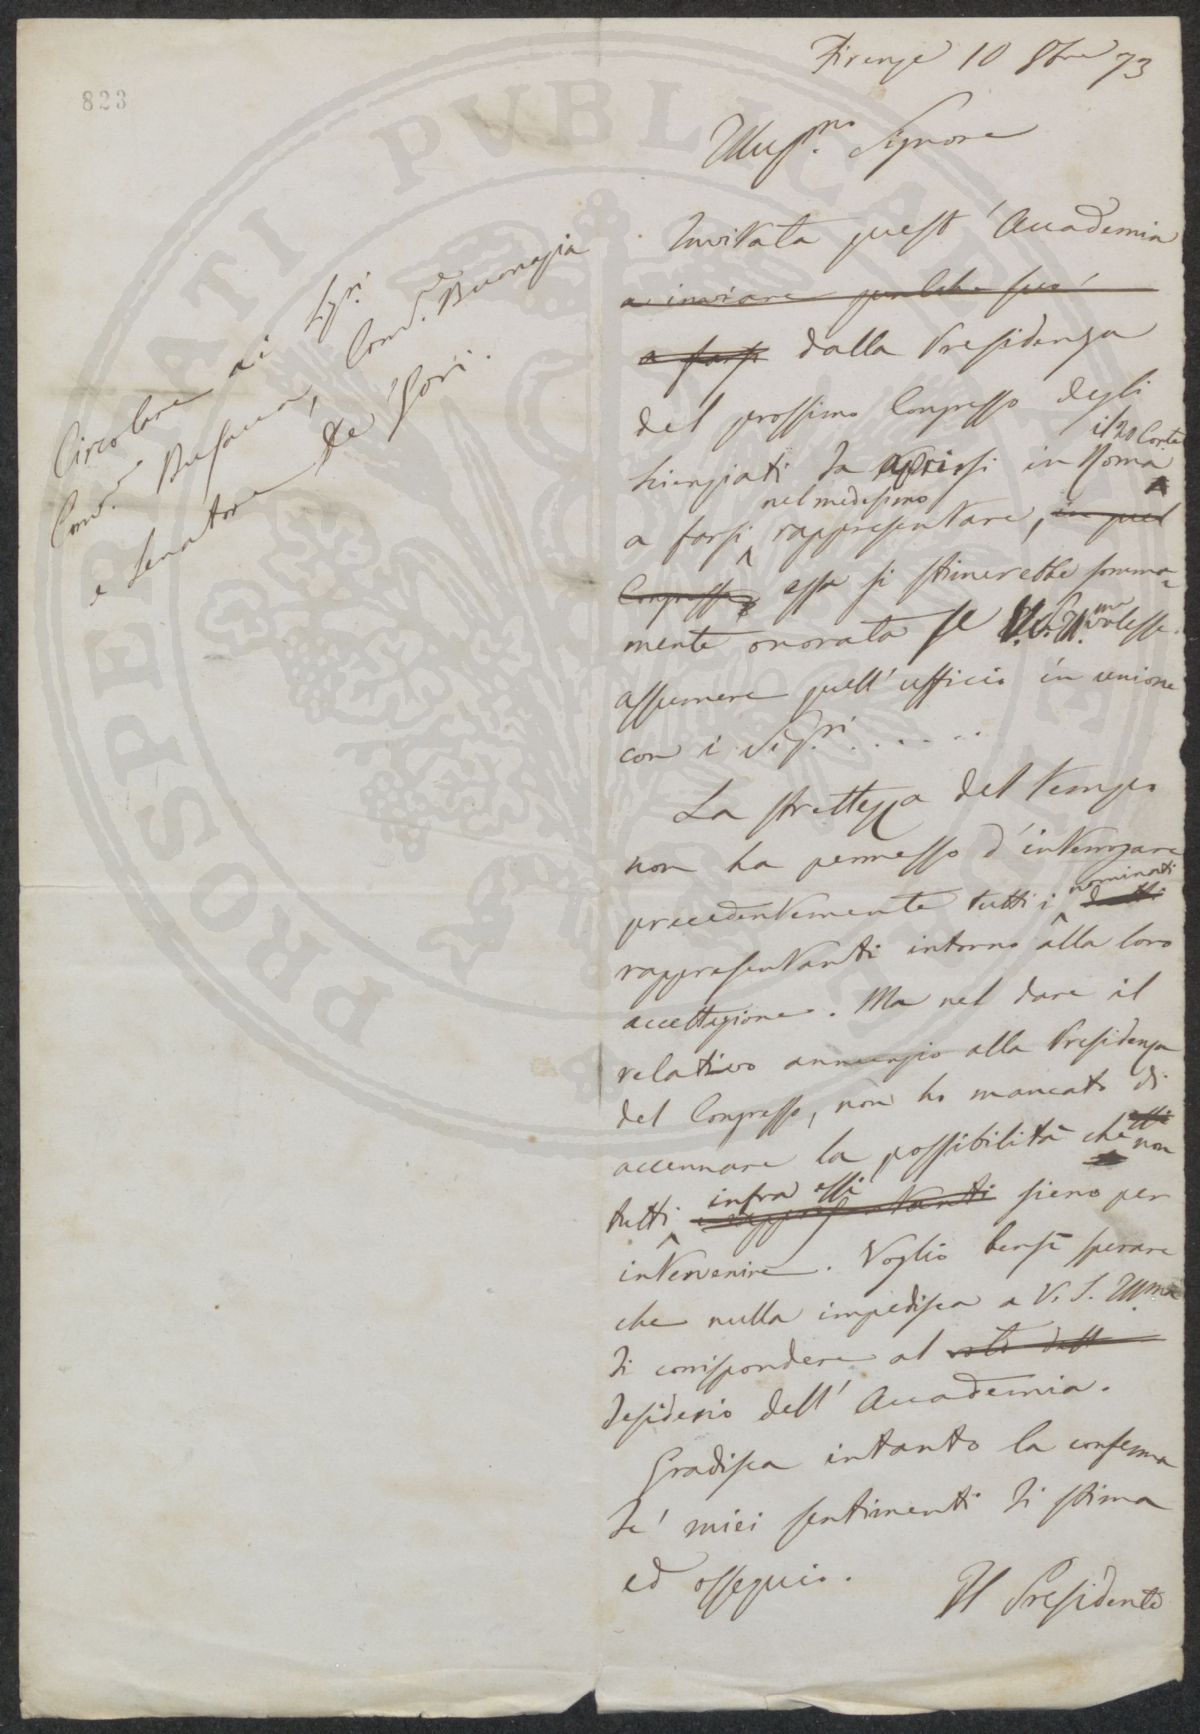 823
Firenze 10 8bre 73
Illus.mo Signore
Circolare ai Sigri.
Comd.e Busacca, Comd.e Buonazia
e Senatore De' Gori.
Invitata quest' Accademia
a inviare
a farsi dalla Presidenza
del prossimo Congresso degli
il 20 Corte
Scienziati da aprirsi in Roma
nel medesimo
a farsi rappresentare, in quel
Congresso essa si stimerebbe somma-
mente onorata se V.S. Ill.ma volesse
assumere quell' ufficio in unione
con i Sig.ri . . . . . .
La strettezza del tempo
non ha permesso d' interrogare
nominati
precedentemente tutti i detti
rappresentanti intorno alla loro
accettazione. Ma nel dare il
relativo annunzio alla Presidenza
del Congresso, non ho mancato di
accennare la possibilità che non
infra essi
tutti i rappresentanti sieno per
intervenire. Voglio bensì sperare
che nulla impedisca a V. S. Ill.ma
di corrispondere al voto dell
desiderio dell' Accademia.
Gradisca intanto la conferma
de' miei sentimenti di stima
ed ossequio.
Il Presidente
PROSPERITATI PVBLICAE